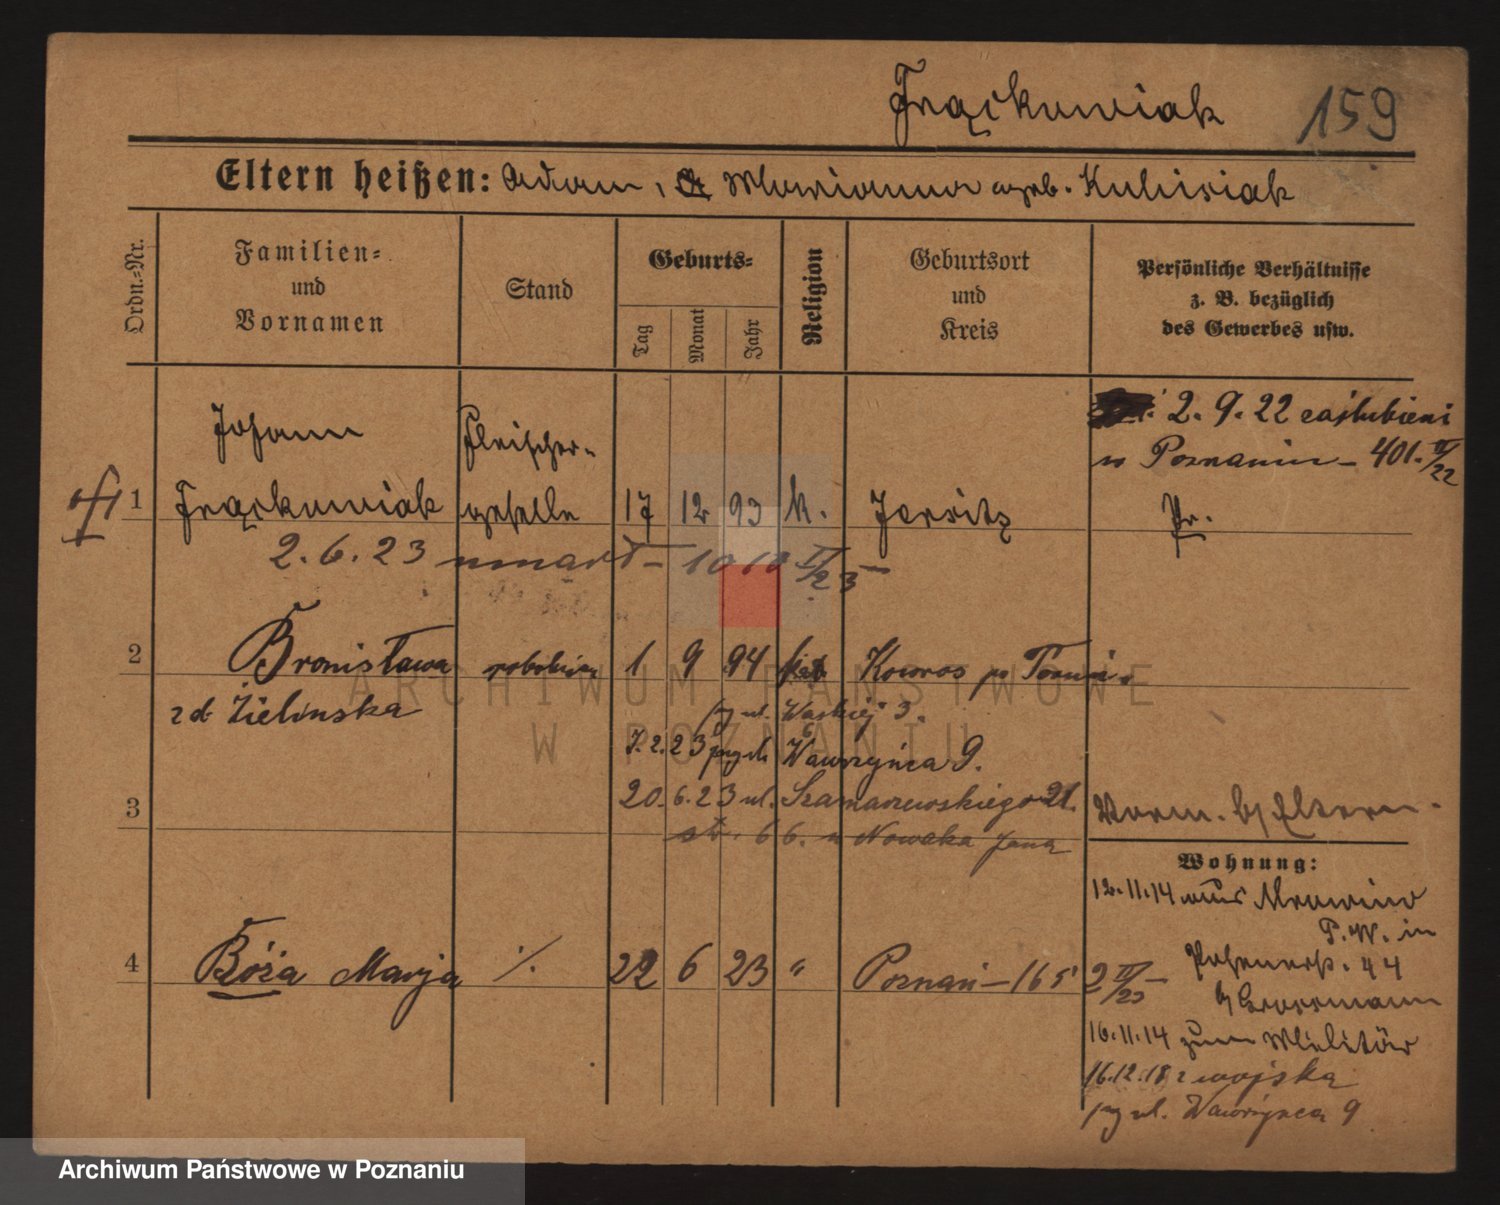 Frąckowiak 159
Eltern heißen: Adam, Marianna geb. Kubisiak
Ordn.-Nr.
Familien-
und
Vornamen
Stand
Geburts-
Tag
Monat
Jahr
Religion
Geburtsort
und
Kreis
Persönliche Verhältnisse
z. B. bezüglich
des Gewerbes usw.
2. 9. 22 zaślubieni
w Poznaniu – 401. II/22
Johann Fleischer-
1 Frąckowiak geselle 17 12 93 k. Jersitz Pr.
2. 6. 23 umarł – 1010 II/23 –
2 Bronisława robotnica 1 9 94 kat. Kowros p. Toruń.
z d. Zielinska
pz ul. Waskiej 3.
7. 2. 23 przy ul. Wawrzyńca 9.
20. 6. 23 ul. Szamarzewskiego 21.
3
66. u Nowaka Jana
Vorm. b/ Eltern.
Wohnung:
12.11.14 aus
P.W. in
Posenerst. 44
b/ Grossmann
4 Bóża Marja ·/. 22 6 23 " Poznań – 165 2 II/23 –
16.11.14 zum Militär
16.12.18 z wojska
pz ul. Wawrzyńca 9
ARCHIWUM PAŃSTWOWE
W POZNANIU
Archiwum Państwowe w Poznaniu